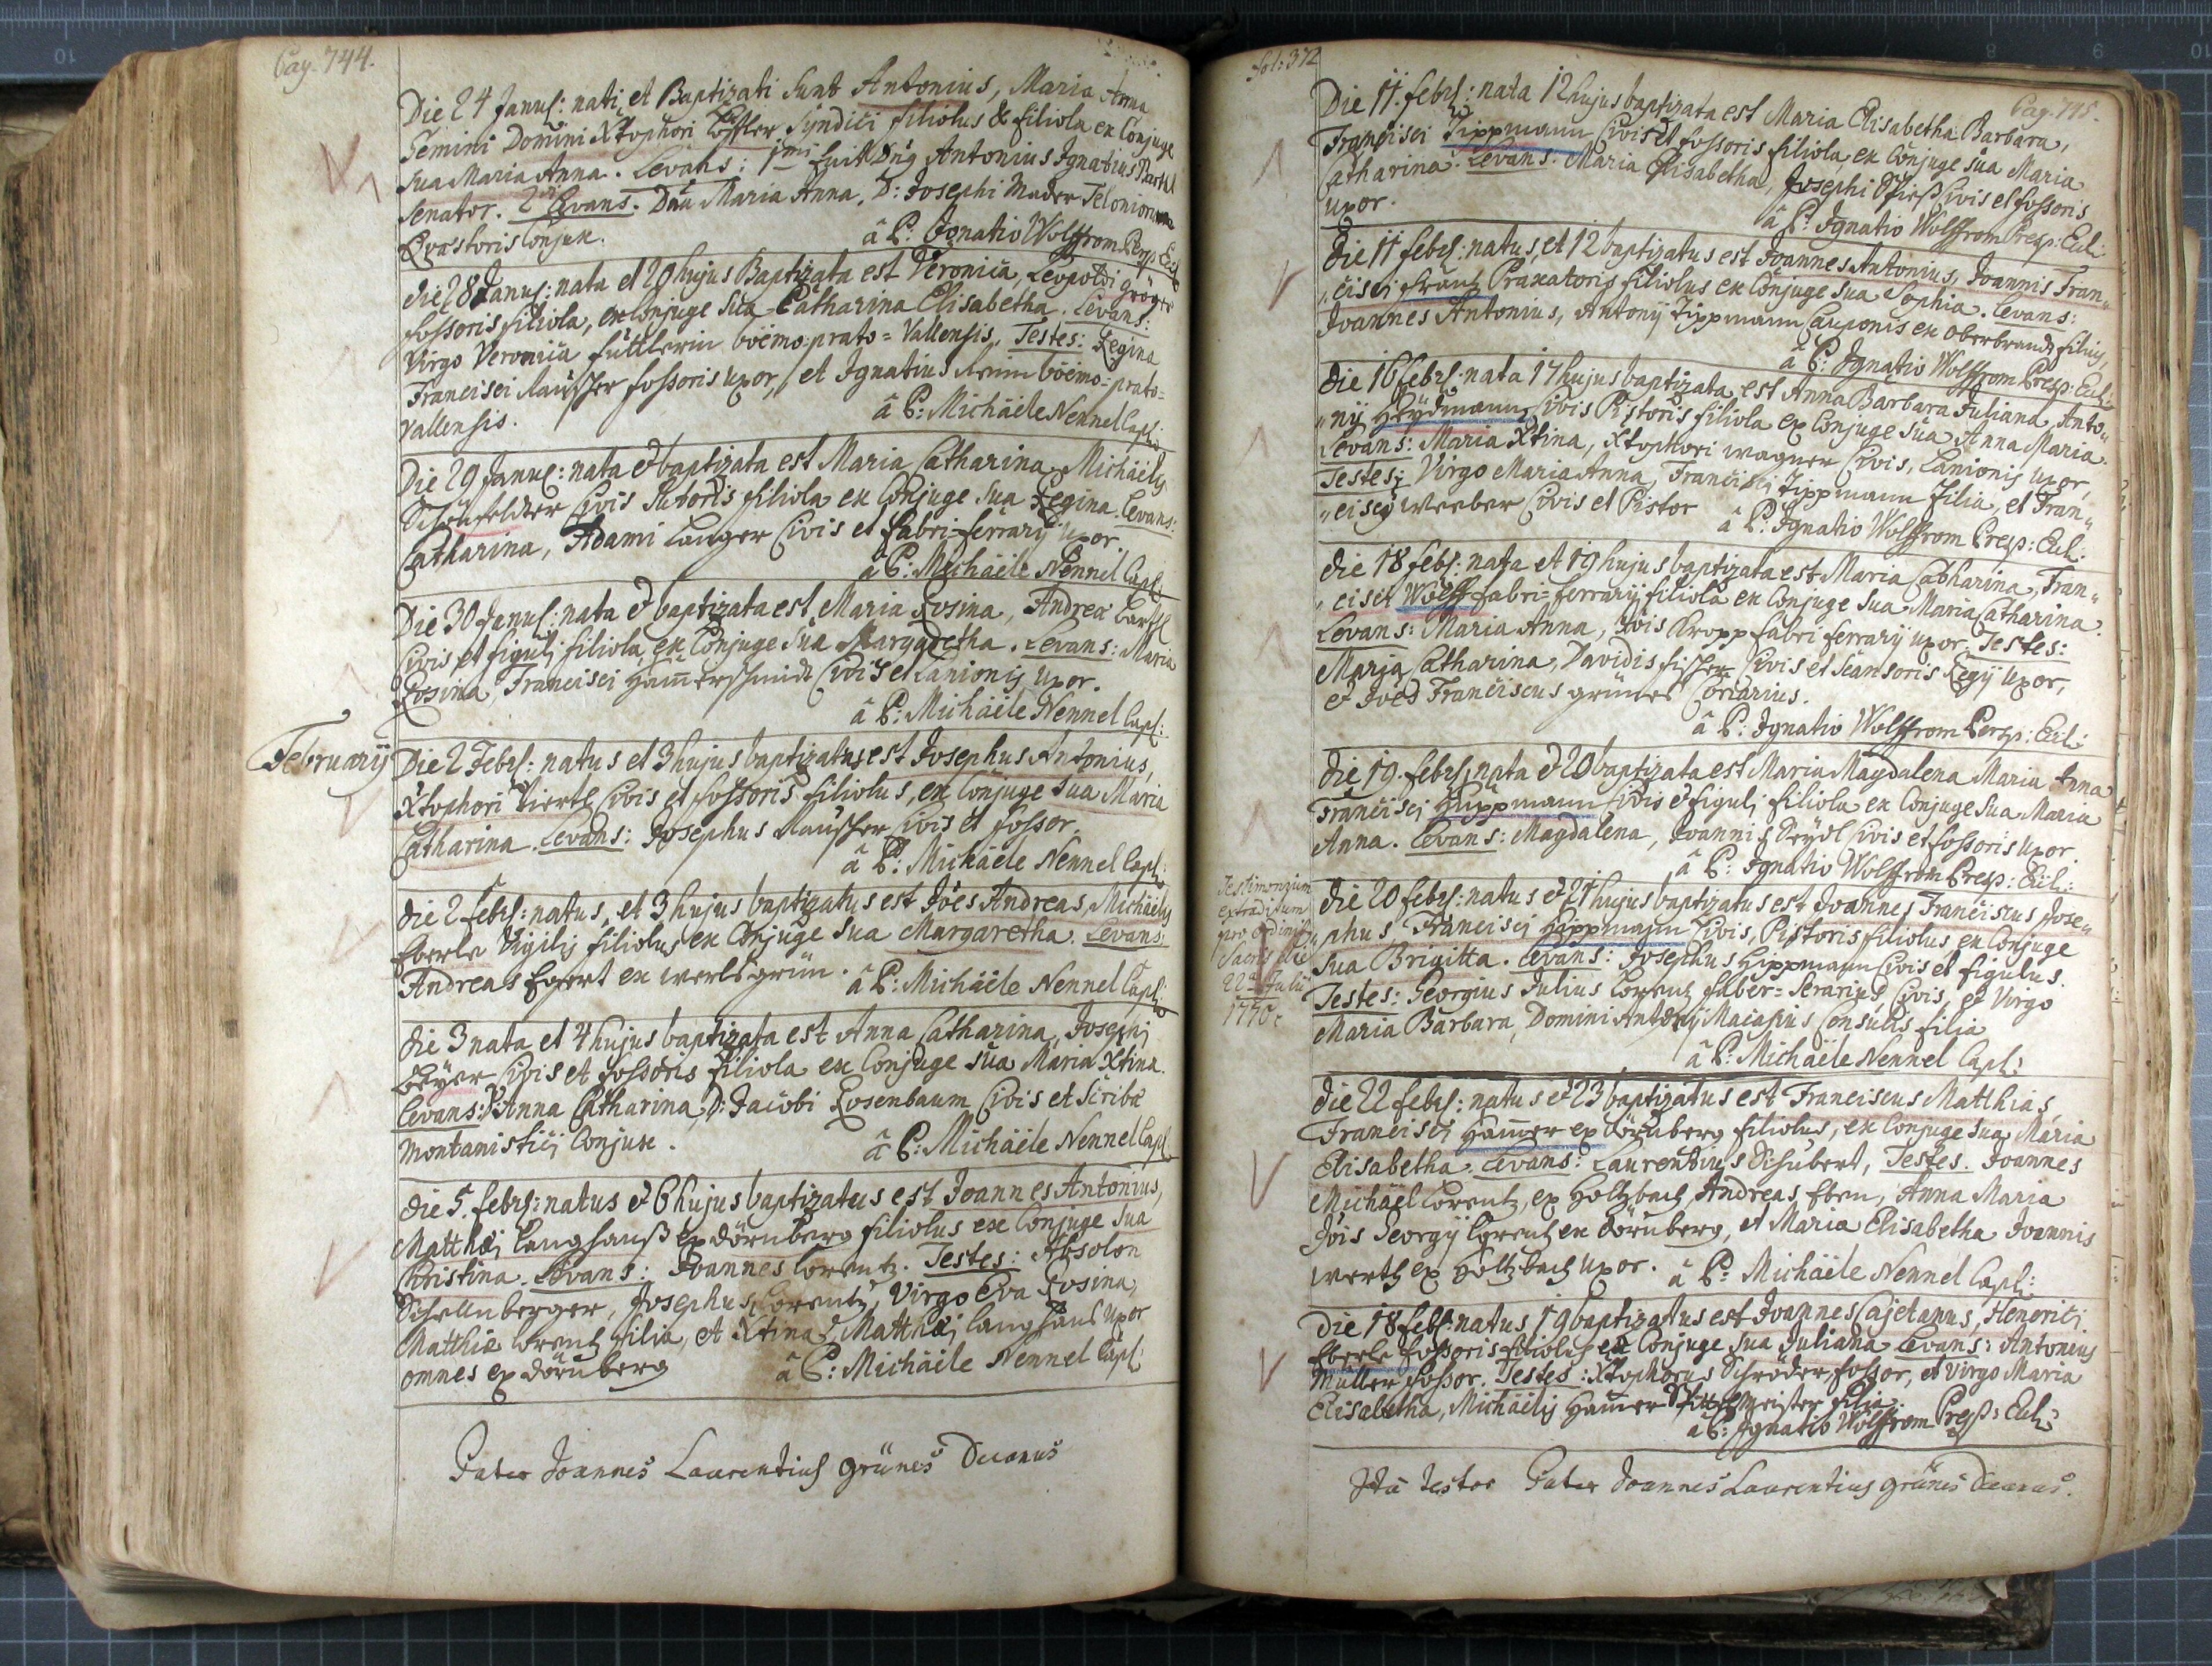 Pag. 744.
Die 24 Januş: nati, et Baptizati sunt Antonius, Maria Anna
Gemini Domini Xtophori Syndici filiolus & filiola ex Conjuge
sua Maria Anna. Levans: 1mi fuit Dnş Antonius Ignatius
Senator. 2dae Levans. Dna Maria Anna, D: Josephi Mader
Quaestoris Conjux. â P: Ignatio Wolffrom Presp: Eccl:
die 28 Januş: nata et 29 hujus Baptizata est Veronica, Leopoldi
fossoris filiola, ex Conjuge sua Catharina Elisabetha. Levans:
Virgo Veronica füttlerin böëmo-prato=Vallensis. Testes: Regina
Francisci Rauscher fossoris uxor, et Ignatius böëmo=prato=
vallensis. â P: Michäële Nennel Capl:
Die 29 Januş: nata & baptizata est Maria Catharina, Michäëlis
Civis Sutoris filiola ex Conjuge sua Regina. Levans:
Catharina, Adami Langer Civis et fabri-ferrarij uxor.
â P: Michäële Nennel Capl:
Die 30 Januş: nata & baptizata est Maria Rosina, Andreæ Bartl
Civis et figuli filiola, ex Conjuge sua Margaretha. Levans: Maria
Rosina, Francisci Ham̄erschmidt Civis et Lanionis uxor.
â P: Michäële Nennel Capl:
Februarij
Die 2 Febrş: natus et 3 hujus baptizatus est Josephus Antonius,
Xtophori Viertl Civis et fossoris filiolus, ex Conjuge sua Maria
Catharina. Levans: Josephus Rauscher Civis et fossor.
â P: Michäële Nennel Capl:
die 2 febrş: natus, et 3 hujus baptizatus est Jöës Andreas, Michäëlis
Eberle Vigilis filiolus, ex Conjuge sua Margaretha. Levans:
Andreas Egert ex werlsgrün. â P: Michäële Nennel Capl:
die 3 nata et 4 hujus baptizata est Anna Catharina, Josephi
Beyer Civis et fossoris filiola ex Conjuge sua Maria Xtina.
Levans: Anna Catharina, D: Jacobi Rosenbaum Civis et Scribæ
montanistici Conjux. â P: Michäële Nennel Capl:
die 5. febrş: natus & 6 hujus baptizatus est Joannes Antonius,
Matthæi Langhanß ex dörnberg filiolus ex Conjuge sua
Christina. Levans: Joannes Lorentz. Testes: Absolon
Schellnberger, Josephus Lorentz, Virgo Eva Rosina,
Matthiæ Lorentz filia, et Xtina, Matthæi Langhans uxor
omnes ex dörnberg â P: Michäële Nennel Capl:
Pater Joannes Laurentius Grünes Decanus
fol: 372
Pag. 745.
Die 11. febrş: nata 12 hujus baptizata est Maria Elisabetha Barbara,
Francisci Tippmann Civis et fossoris filiola, ex Conjuge sua Maria
Catharina. Levans: Maria Elisabetha, Josephi Civis et fossoris
uxor. â P: Ignatio Wolffrom Presp: Eccl:
die 11 febrş: natus, et 12 baptizatus est Joannes Antonius, Joannis Fran„
„cisci Praxatoris filiolus ex Conjuge sua Sophia. Levans:
Joannes Antonius, Antonij Tippmann Cauponis ex oberbrandt filius,
â P: Ignatio Wolffrom Presp: Eccl:
die 16 febrş: nata 17 hujus baptizata est Anna Barbara Juliana, Anto„
„nij Heydmann Civis Pistoris filiola ex Conjuge sua Anna Maria.
Levans: Maria Xtina, Xtophori wagner Civis, Lanionis uxor,
Testes: Virgo Maria Anna, Francisci Tippmann filia, et Fran„
„ciscus weeber Civis et Pistor â P: Ignatio Wolffrom Presp: Eccl:
die 18 febş: nata et 19 hujus baptizata est Maria Catharina, Fran„
„cisci Wolff fabri=ferrarij filiola ex Conjuge sua Maria Catharina.
Levans: Maria Anna, Jöis Kropp fabri ferrarij uxor. Testes:
Maria Catharina, Davidis fischer Civis et Scansoris Regij uxor,
& Jöës Franciscus grünes Coriarius.
â P: Ignatio Wolffrom Presp: Eccl:
die 19. febrş: nata & 20 baptizata est Maria Magdalena Maria Anna
Francisci Hippmann Civis & figuli filiola ex Conjuge sua Maria
Anna. Levans: Magdalena, Joannis Seydl Civis et fossoris uxor.
â P: Ignatio Wolffrom Presp: Eccl:
Testimonium
extraditum
pro ordinis
Sacris die
22â Julii
1770
die 20 febrş: natus & 21 hujus baptizatus est Joannes Franciscus Jose„
„phus Francisci Hippmann Civis, Pistoris filiolus ex Conjuge
sua Brigitta. Levans: Josephus Hippmann Civis et figulus.
Testes: Georgius Julius Lorentz faber=Serarius Civis, et Virgo
Maria Barbara, Domini Antonij Consulis filia
â P: Michäële Nennel Capl:
die 22 febrş: natus & 23 baptizatus est Franciscus Matthias,
Francisci Ham̄er ex dörnberg filiolus, ex Conjuge sua Maria
Elisabetha. Levans: Laurentius Schubert, Testes. Joannes
Michäël Lorentz, ex Holtzbach, Andreas Eben, Anna Maria
Jöis Georgij Lorentz ex dörnberg, et Maria Elisabetha Joannis
werth ex Holtzbach uxor. â P: Michäële Nennel Capl:
die 18 febş: natus 19 baptizatus est Joannes Cajetanus, Henorici
Eberle fossoris filiolus ex Conjuge sua Juliana Levans: Antonius
Müller fossor. Testes: Xtophorus Schröder, fossor, et Virgo Maria
Elisabetha, Michäëlis Ham̄er filia.
â P: Ignatio Wolffrom Presp: Eccl:
Ita testor Pater Joannes Laurentius Grünes Decanus.